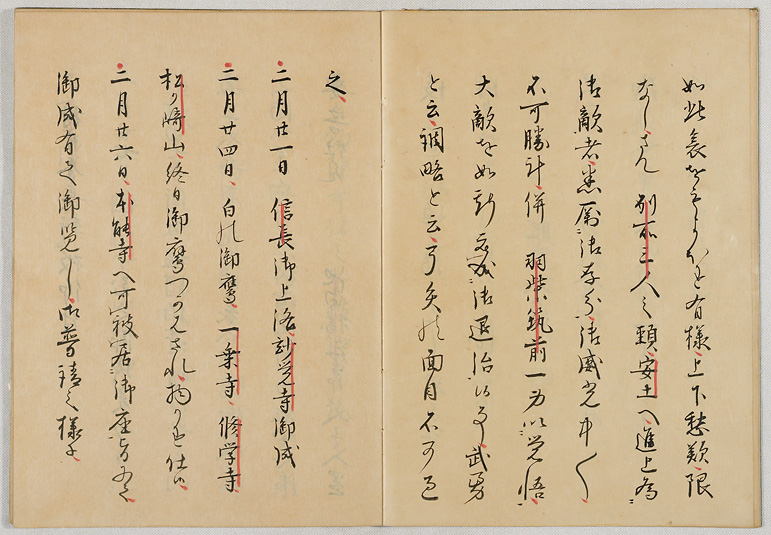 如此哀なるよりほかと有様上下愁歎限
なし、さん別所三人之頸安土へ進上為
御敵者悉属御存分御威光中〱
不可勝計、併羽柴筑前一身以覚悟
大敵を如斯、御退治候事、武勇
と云、調略と云、弓矢の面目不可過
之、
二月廿一日、信長御上洛、妙覚寺御成
二月廿四日、白の御鷹、一乗寺、修学寺、
松か崎山、終日御鷹つかはされ、物かす仕候、
二月廿六日、本能寺へ可被居御座旨にて、
御成有之御覧し、御普請之様子、